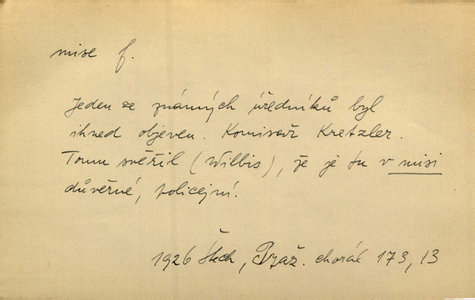 mise f.
Jeden ze známých úředníků byl
ihned objeven. Komisař Kretzler.
Tomu svěřil (Wilbis), že je tu v misi
důvěrné, policejní.
1926 Škch, Praž. chorál 173, 13